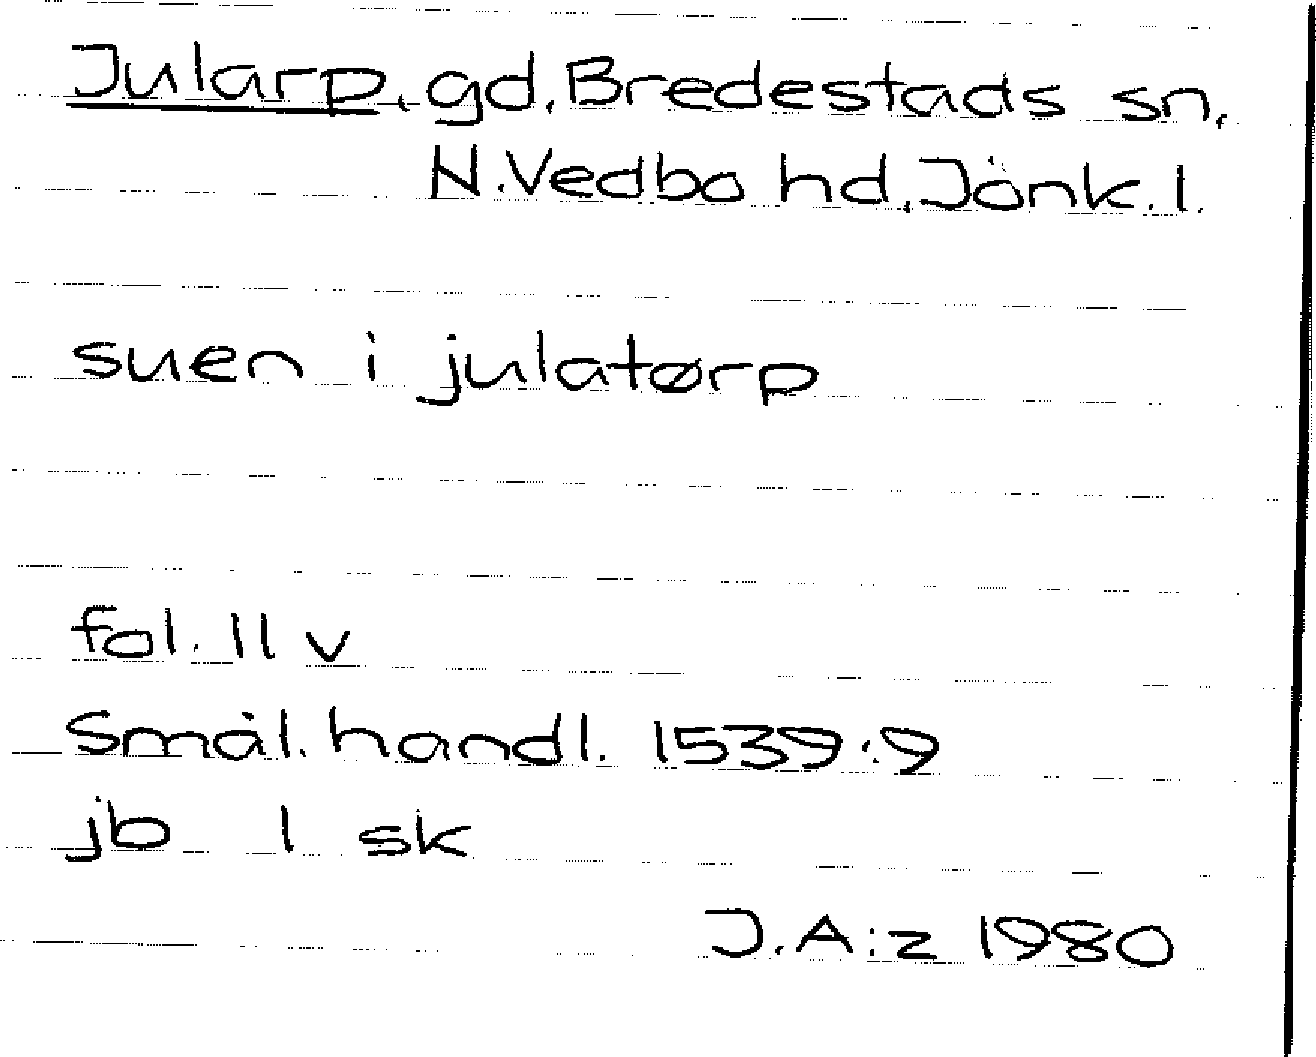 Jularp, gd, Bredestads sn,
N. Vedbo hd, Jönk. l.
suen i julatørp
fol. 11 v
Smål. handl. 1539:9
jb 1 sk
J.A:z 1980